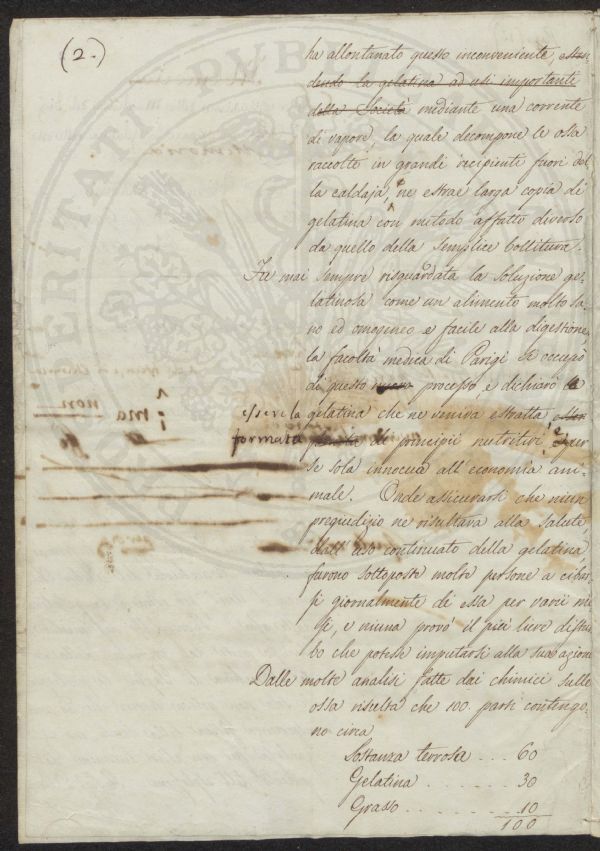 (2.)
ha allontanato questo inconveniente, esten
dendo la gelatina ad usi importanti
della Società mediante una corrente
di vapore, la quale decompone le ossa
raccolte in grandi recipienti fuori del
la caldaja, ne estrae larga copia di
gelatina con metodo affatto diverso
da quello della semplice bollitura.
Fu mai sempre risguardata la soluzione ge-
latinosa come un alimento molto sa-
no ed omogineo e facile alla digestione,
la facoltà medica di Parigi se occupò
di questo nuovo processo, e dichiarò la
essere la gelatina che ne veniva estratta
formata di principii nutritivi, e per
se sola innocua all'economia ani-
male. Onde assicurarsi che niun
pregiudizio ne risultava alla salute,
dall'uso continuato della gelatina
furono sottoposte molte persone a cibar
si giornalmente di essa per varii me
si, e niuna provò il più lieve distur
bo che potesse imputarsi alla sua azione
Dalle molte analisi fatte dai chimici sulle
ossa risulta che 100. parti contengo-
no circa
Sostanza terrosa . . . 60
Gelatina . . . . . . . 30
Grasso . . . . . . . . 10
100
ma non